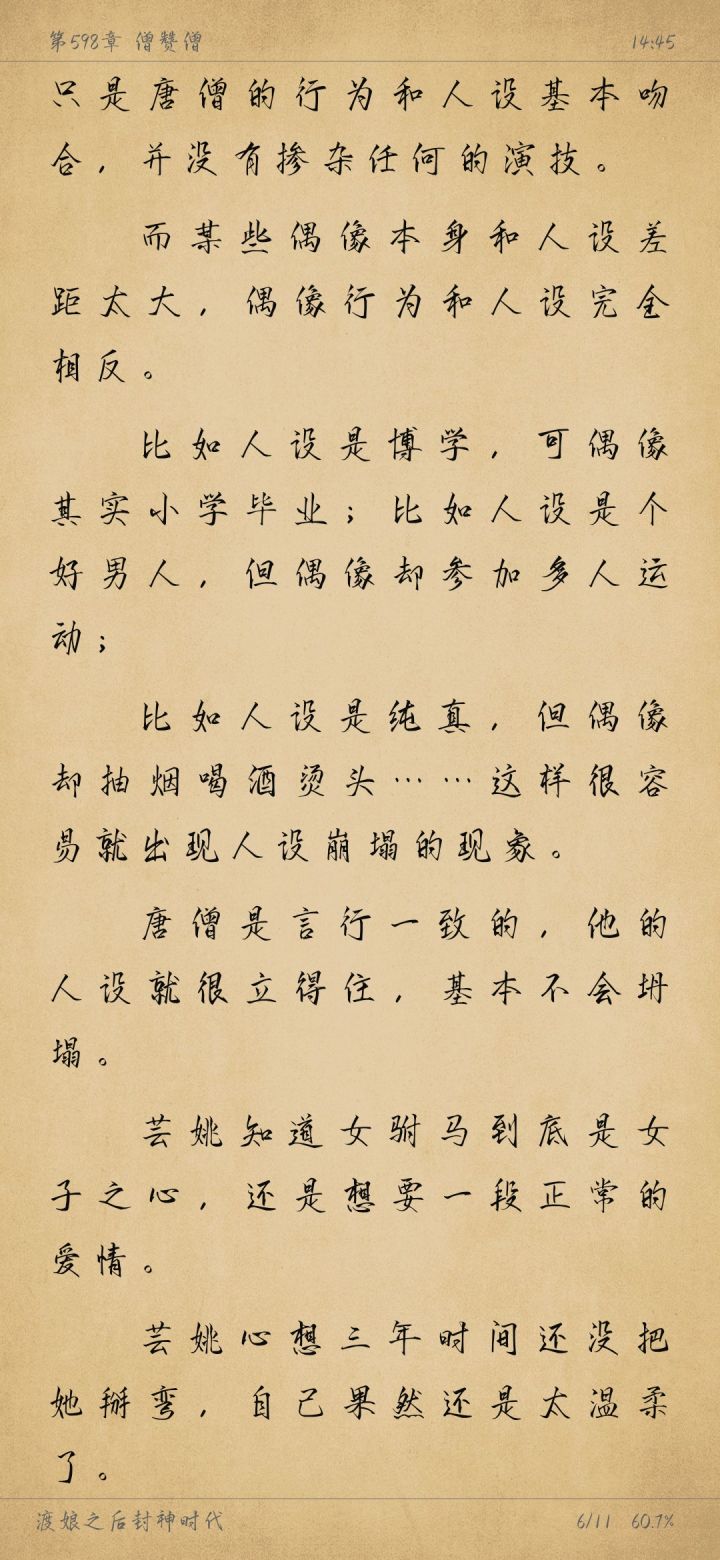 第598章 僧赞僧
14:45
只是唐僧的行为和人设基本吻
合，并没有掺杂任何的演技。
而某些偶像本身和人设差
距太大，偶像行为和人设完全
相反。
比如人设是博学，可偶像
其实小学毕业；比如人设是个
好男人，但偶像却参加多人运
动；
比如人设是纯真，但偶像
却抽烟喝酒烫头……这样很容
易就出现人设崩塌的现象。
唐僧是言行一致的，他的
人设就很立得住，基本不会坍
塌。
芸姚知道女驸马到底是女
子之心，还是想要一段正常的
爱情。
芸姚心想三年时间还没把
她掰弯，自己果然还是太温柔
了。
渡娘之后封神时代
6/11 60.7%